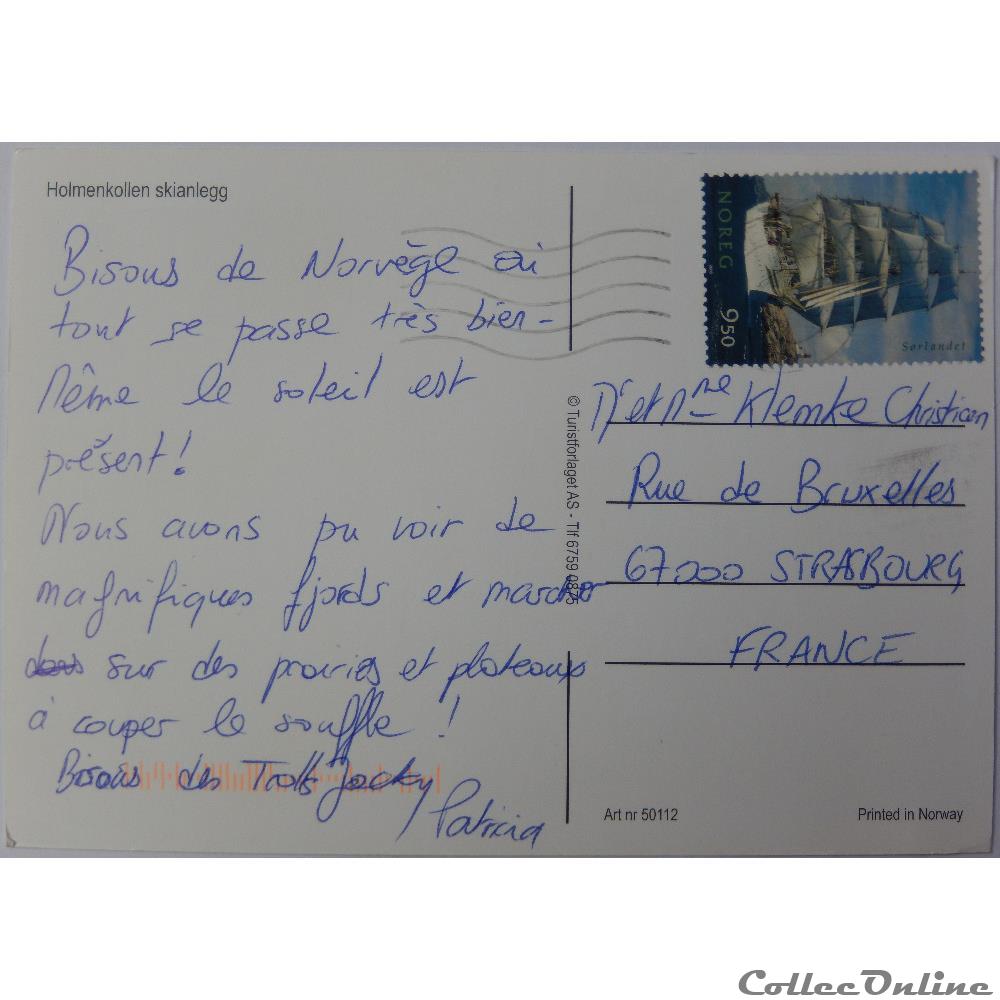 Holmenkollen skianlegg
Bisous de Norvège où
tout se passe très bien -
Même le soleil est
présent !
Nous avons pu voir de
magnifiques fjords et marcher
sur des prairies et plateaux
à couper le souffle !
Bisous des Trolls Jacky
Patricia
NOREG
950
Sørlandet
© Turistforlaget AS - Tlf 6759 0875
Mr et Mme Klemke Christian
Rue de Bruxelles
67000 STRASBOURG
FRANCE
Art nr 50112
Printed in Norway
CollecOnline